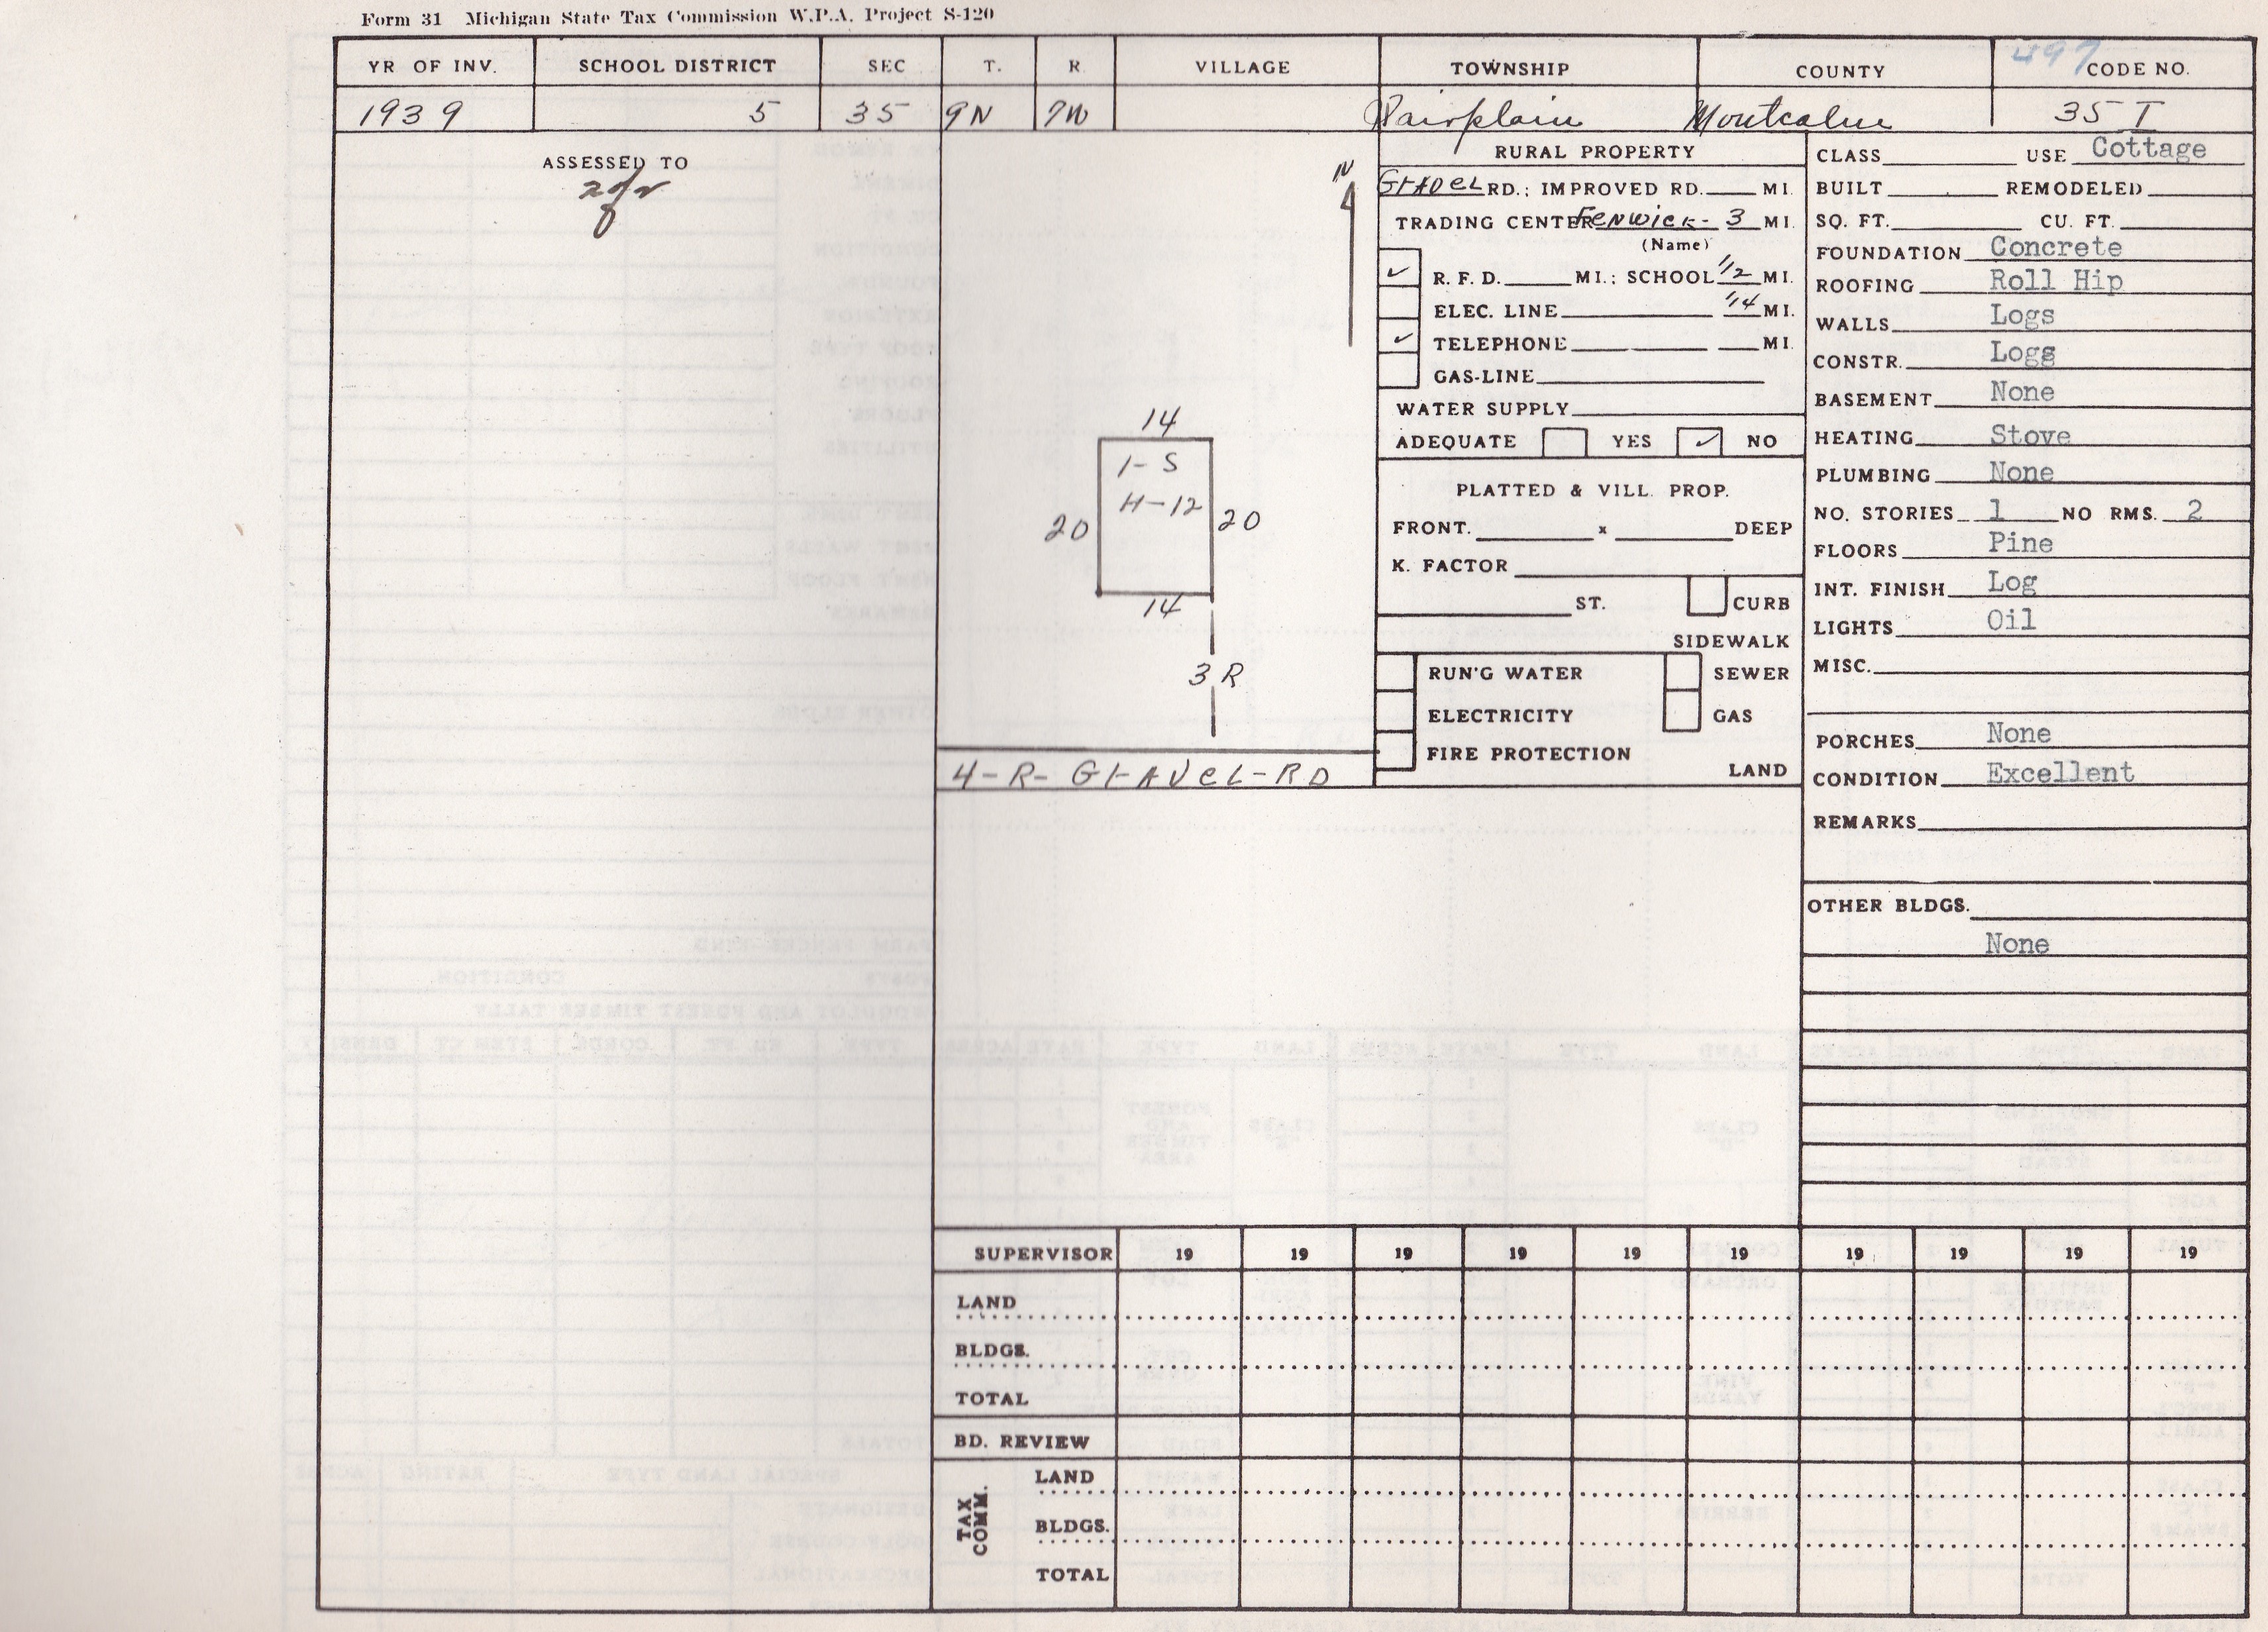 Form 31 Michigan State Tax Commission W.P.A. Project S-120
497
YR OF INV. SCHOOL DISTRICT SEC T. R. VILLAGE TOWNSHIP COUNTY CODE NO.
1939 5 35 9N 7W Fairplain Montcalm 35 I
ASSESSED TO
2 of 2
N
14
1-S
H-12
20 20
14
3 R
4-R- GrAVeL-RD
RURAL PROPERTY
GrAVeL RD.; IMPROVED RD. MI.
TRADING CENTER Fenwick- 3 MI.
(Name)
✓ R. F. D. MI.; SCHOOL 1/2 MI.
ELEC. LINE 1/4 MI.
✓ TELEPHONE MI.
GAS-LINE
WATER SUPPLY
ADEQUATE YES ✓ NO
PLATTED & VILL. PROP.
FRONT. x DEEP
K. FACTOR
ST. CURB
SIDEWALK
RUN'G WATER SEWER
ELECTRICITY GAS
FIRE PROTECTION
LAND
CLASS USE Cottage
BUILT REMODELED
SQ. FT. CU. FT.
FOUNDATION Concrete
ROOFING Roll Hip
WALLS Logs
CONSTR. Logs
BASEMENT None
HEATING Stove
PLUMBING None
NO. STORIES 1 NO RMS. 2
FLOORS Pine
INT. FINISH Log
LIGHTS Oil
MISC.
PORCHES None
CONDITION Excellent
REMARKS
OTHER BLDGS.
None
SUPERVISOR 19 19 19 19 19 19 19 19 19 19
LAND
BLDGS.
TOTAL
BD. REVIEW
TAX COMM.
LAND
BLDGS.
TOTAL